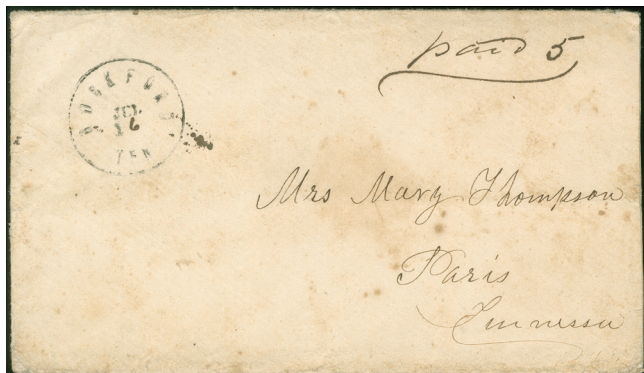 paid 5
ROCKFORD
JUL
16
TEN
Mrs Mary Thompson
Paris
Tennessee